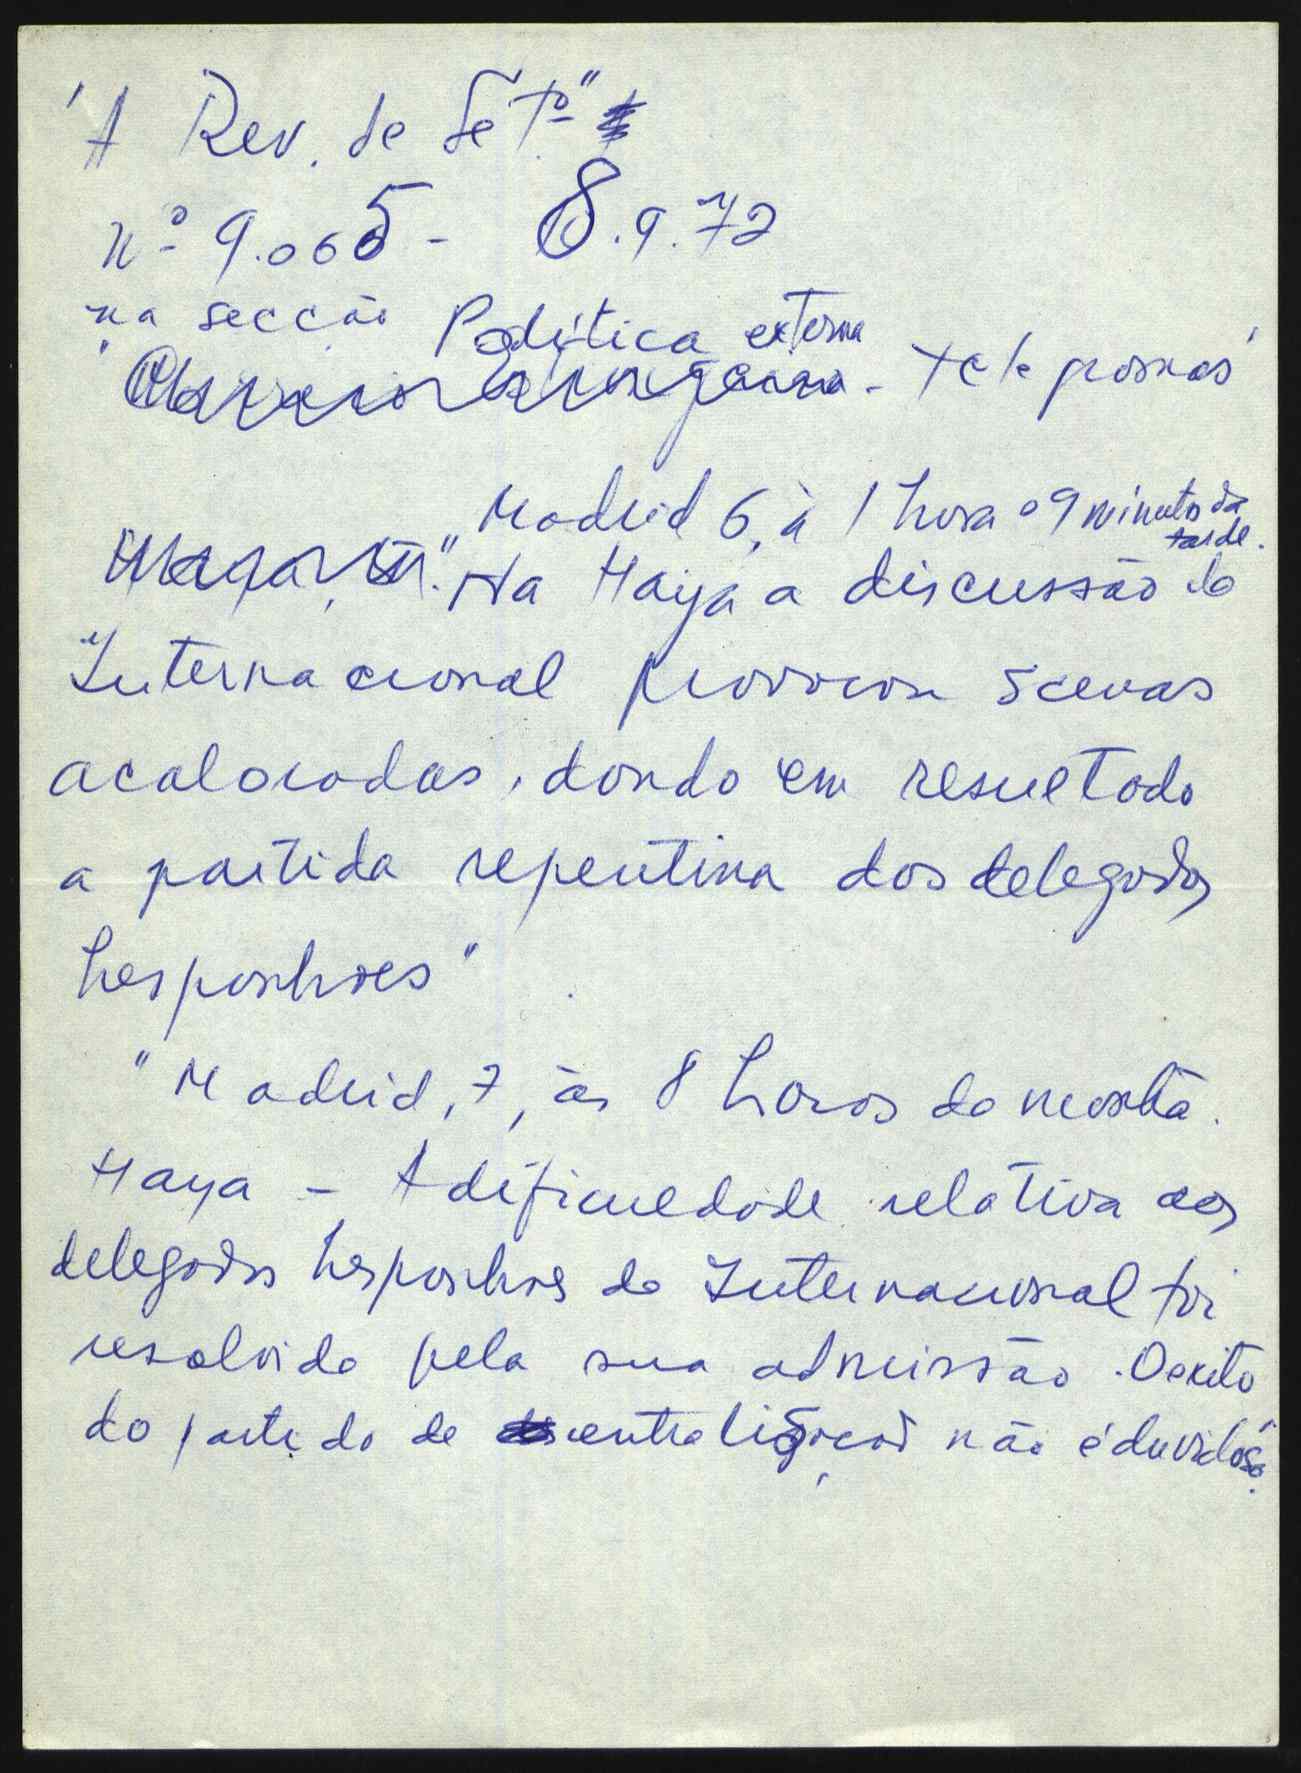 "A Rev. de Setº"
nº 9.065 - 8.9.72
na secção Política externa
- telegramas"
Madrid 6, à 1 hora e 9 minutos da
tarde.
"Na Haya a discussão da
Internacional provocou scenas
acaloradas, dando em resultado
a partida repentina dos delegados
hespanhoes".
"Madrid, 7, às 8 horas da manhã.
Haya - A dificuldade relativa aos
delegados hespanhoes da Internacional foi
resolvida pela sua admissão. O exito
do partido de centralização não é duvidoso".